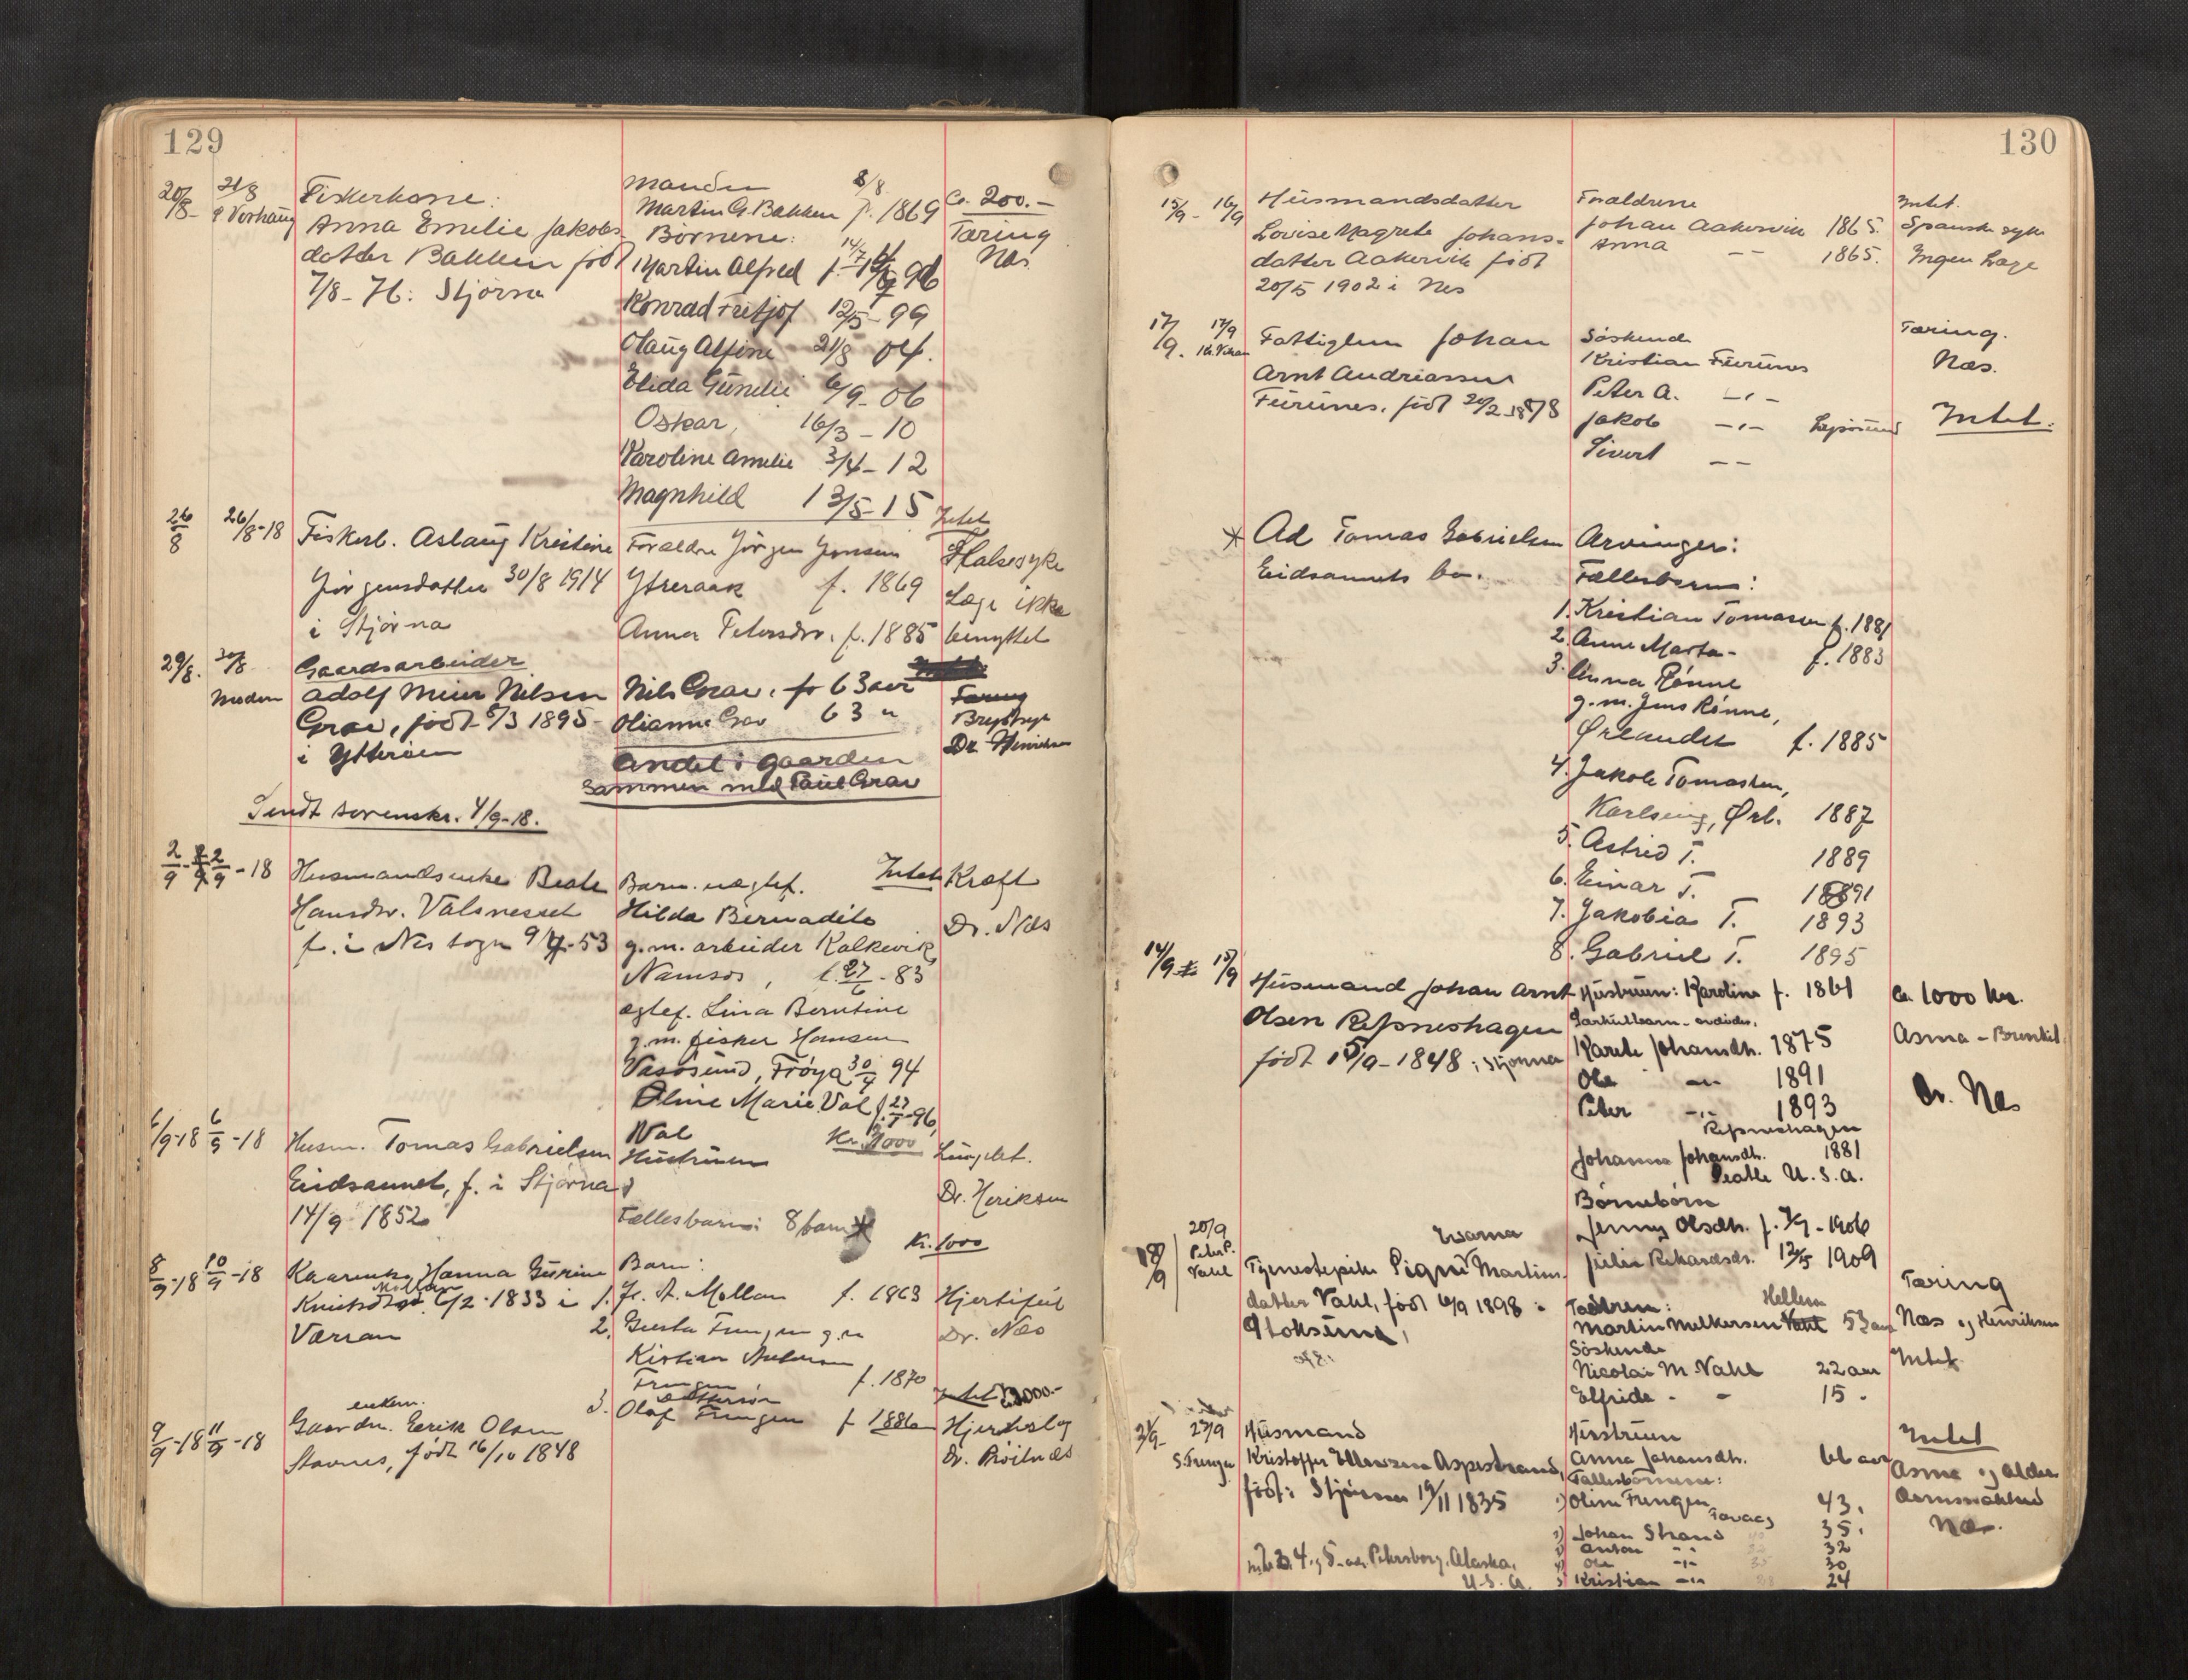 129
20/8- 21/8 Fiskerkone: Manden 8/8 Ca. 200.-
Anna Emelie Jakobs- Martin G. Bakken f. 1869 Tæring
datter Bakken født Børnene: Næs
7/8-76: Stjørna Martin Alfred f. 96
Konrad Fritjof 12/5-99
Olaug Alfine 21/8 04.
Elida Gunelie 6/9-06
Oskar, 16/3-10
Karoline Amelie 3/4-12
Magnhild 13/5-15
26/8 26/8-18 Fiskerb. Aslaug Kristine Forældre Jørgen Jensen Intet
Jørgensdatter 30/8 1914 Ytreraak f. 1869 Halssyke
i Stjørna Anna Petersdtr. f. 1885 Læge ikke benyttet
29/8. 30/8 Gaardsarbeider
Moderen Adolf Meier Nilsen Nils Grav, f. 63 aar Tæring
Grav, født 5/3 1895 Olianna Grav 63 " Brystsyk
i Ytterøen Dr. Henriksen
Andel i gaarden
sammen med Paul Grav
Sendt sorenskr. 4/9-18.
2/9 2/9-18 Husmandsenke Beate Barn. uægtef. Intet Kræft
Hansdtr. Valsnesset Hilda Bernadite Dr. Næs
f. i Nes sogn 9/7-53 g.m. arbeider Kalkevik
Namsos, f. 27/6-83
ægtef. Lina Berntine
g.m. fisker Hansen
Vasøsund, Frøya 30/4 94
Oline Marie Val f. 27/7-96,
Val
6/9-18 6/9-18 Husm. Tomas Gabrielsen Hustruen Kr. 2000 Lungebet.
Eidsaunet, f. i Stjørna Dr. Heriksen
14/9 1852 Fællesbarn: 8 barn *
Kr. 1000
8/9-18 10/9-18 Kaarenke Hanna Gurine Barn:
Knutsdtr. Mollan 6/2-1833 i 1. Jl. A. Mollan f. 1863 Hjertefeil
Værran 2. Gusta Frengen g.m. Dr. Næs
Kistian Andersen
Frengen f. 1870
dattersøn
3. Olaf Frengen f 1886 Intet 2000.-
9/9-18 11/9-18 enkem. Gaardm. Eerik Olsen Hjerteslag
Stavnes, født 16/10 1848 Dr. Røitnæs
130
15/9- 16/9 Husmandsdatter Forældrene Intet.
Lovise Magrete Johans- Johan Aakervik 1865. Spanske syke
datter Aakervik født Anna — 1865. Ingen Læge
20/5 1902 i Nes
17/9. 17/9 Fattiglem Johan Søskende Tæring.
Arnt Andriassen Kristian Furunes Næs.
Furunes, født 20/2 1878 Peter A. -,-
Jakob -,- Intet.
Sivert --
* Ad Tomas Gabrielsen Arvinger:
Eidsaunets bo. Fællesbarn:
1. Kristian Tomasen f. 1881
2. Anne Marta - f. 1883
3. Anna Rønne
g.m. Jens Rønne,
Ørlandet f. 1885
4. Jakob Tomassen,
Karlseng, Ørl. 1887
5. Astrid T. 1889
6. Einar T. 1891
7. Jakobia T. 1893
8. Gabriel T. 1895
14/9 15/9 Husmand Johan Arnt Hustruen: Karoline f. 1861 Ca. 1000 kr.
Olsen Refsneshagen Særkullbarn Asma - Bronkit
født 15/9-1848 i Stjørna Karete Johansdtr. 1875
Ole -"- 1891 Dr. Næs
Peter -"- 1893
Refsneshagen
Johanna Johansdtr. 1881
Seatle U.S.A.
Børnebørn
Jenny Olsdtr. f. 7/7-1906
Julie Rikardsdtr. 12/5 1909
18/9 20/9 Peter P. Vahl Tjenestepike Signe Martins- Tæring
datter Vahl, født 6/9 1898 i Fadren: Hellem
Stoksund, Martin Melkersen 53 aar Næs og Henriksen
Søskende
Nicolai M. Vahl 22 aar Intet.
Elfride - - 15 .
21/9- 23/9 Husmand Hustruen Intet
S. Frengen Kristoffer Ellewsen Aspestrand, Anna Johansdtr. 66 aar Asma og alder-
født i Stjørna 19/11 1835 Fællesbørnene: domssvakhed
1) Oline Frengen 43. Næs.
2) Johan Strand 35.
3) Anton -"- 32
4) Ole -"- 30
5) Kristian -"- 24
4 og 5 Petersborg, Alaska,
U.S.A.